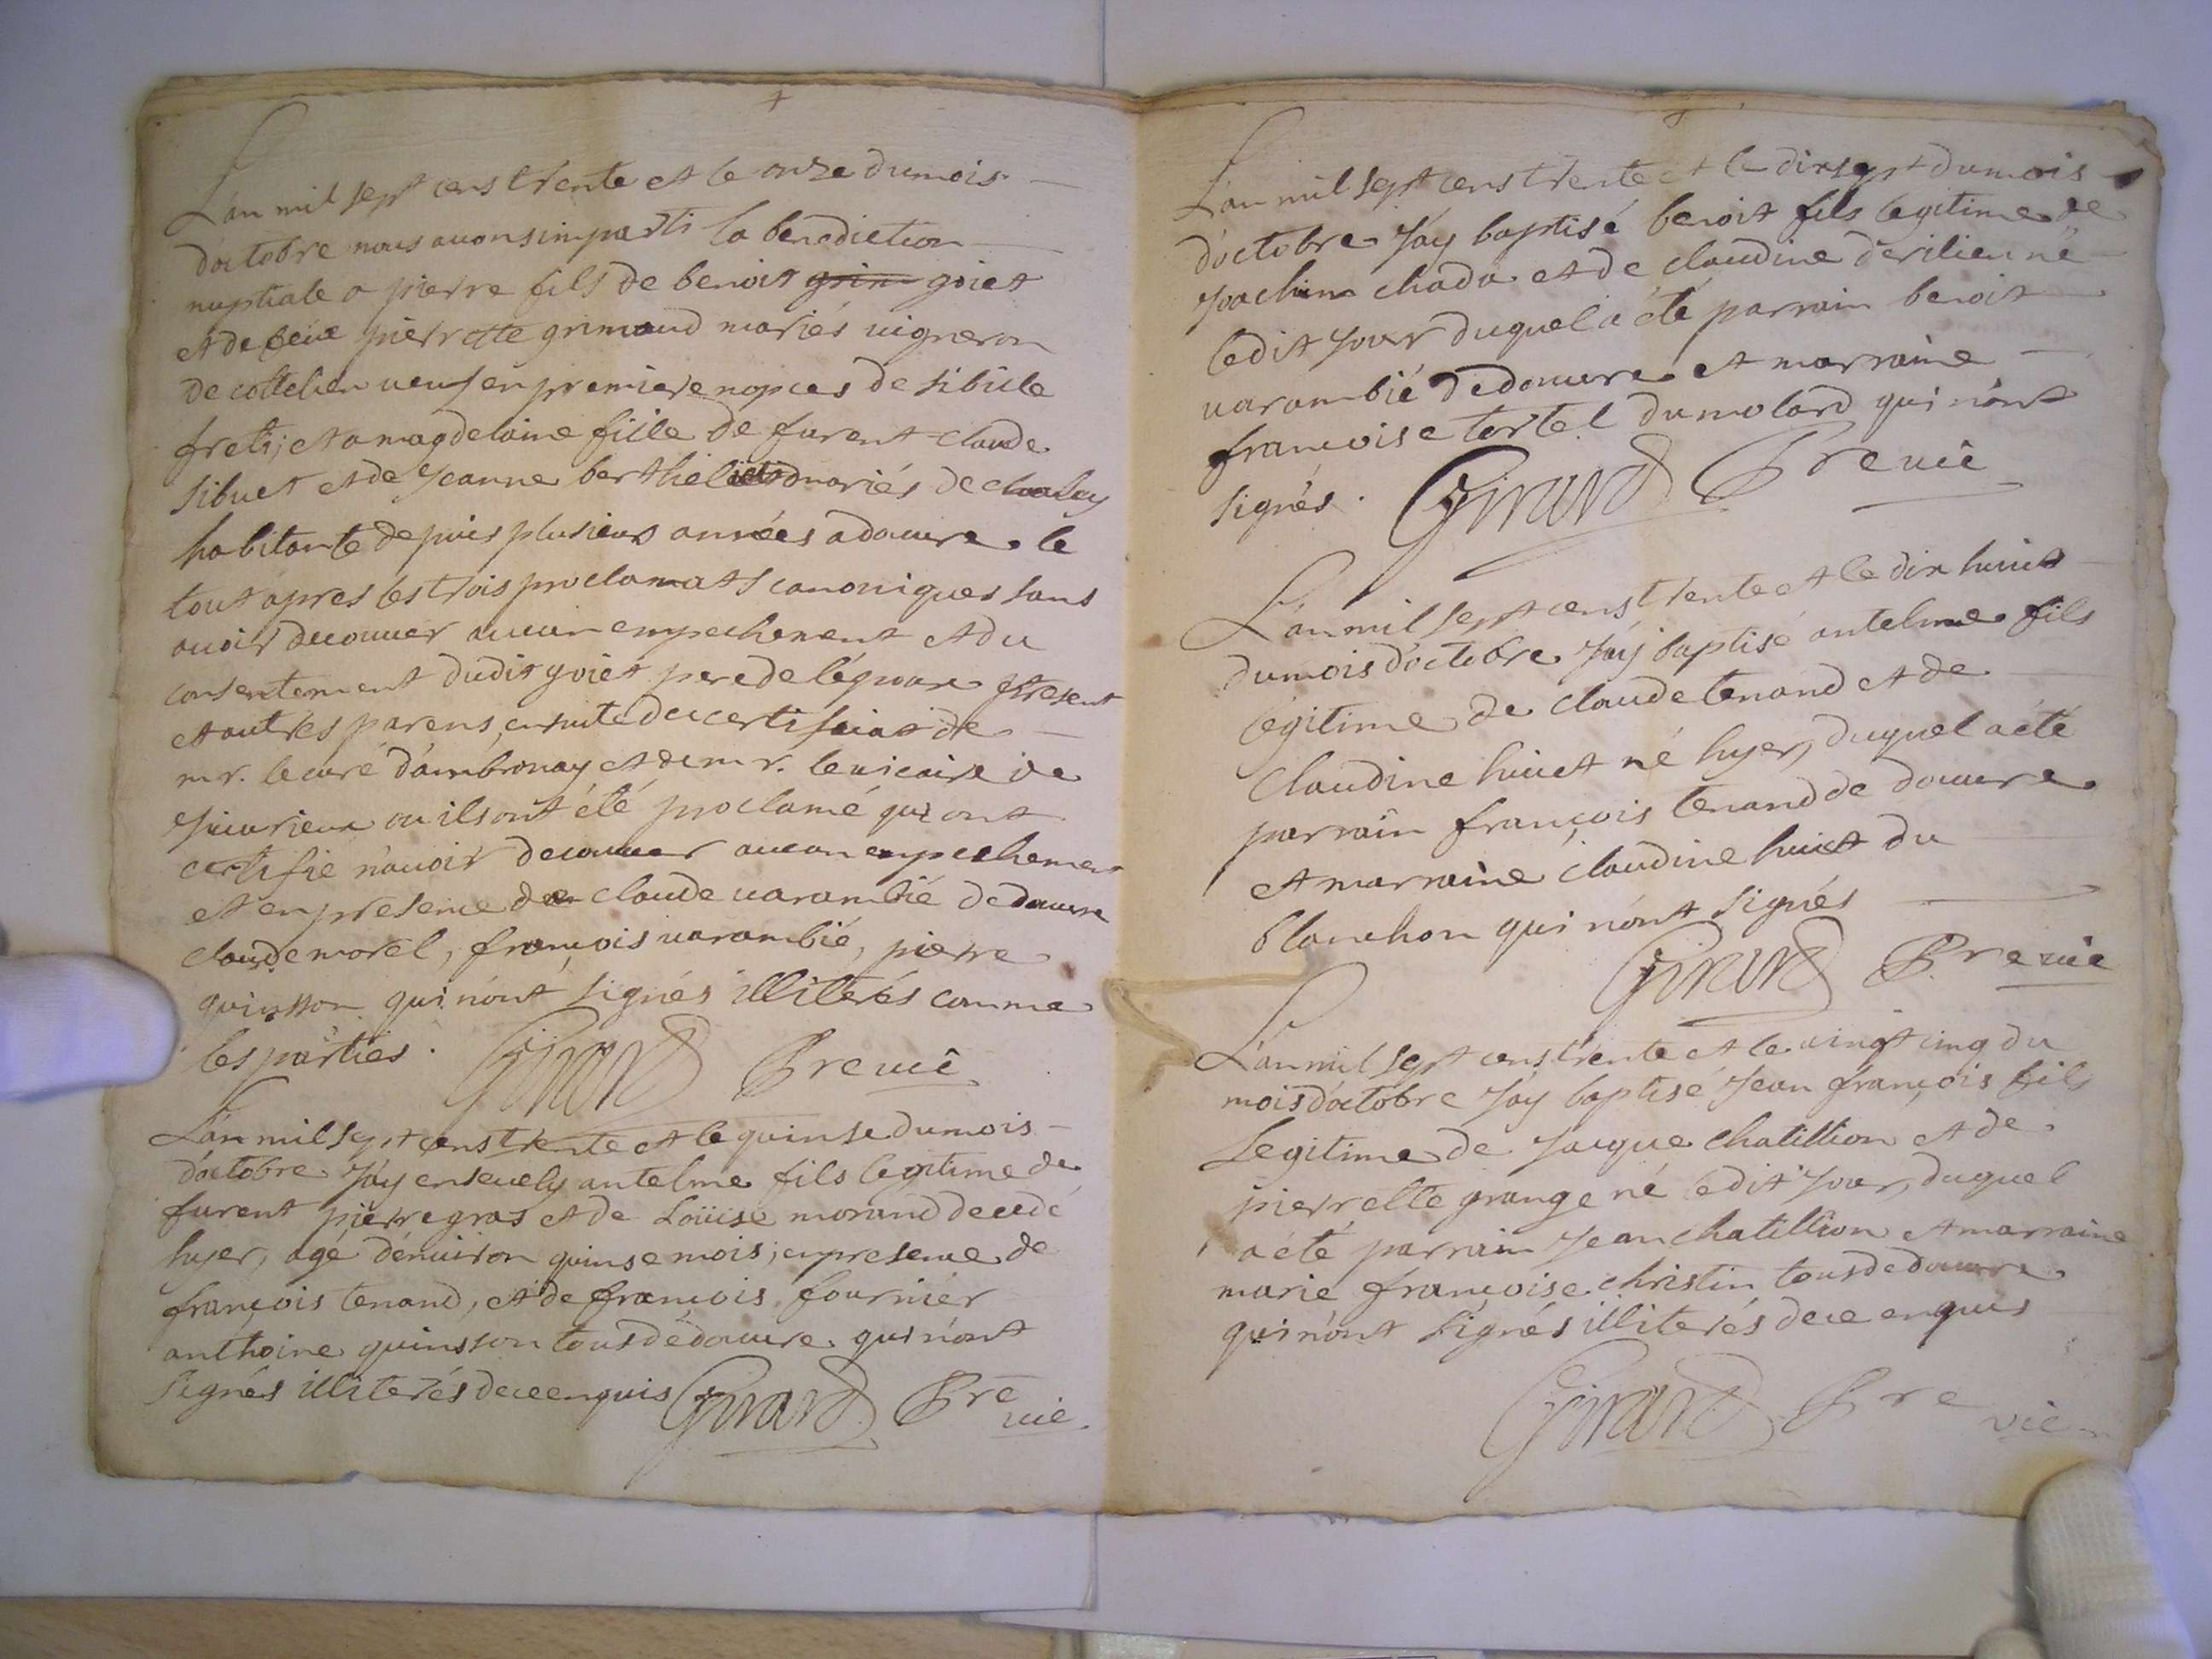 L'an mil sept cens trente et le onze du mois
d'octobre nous avons imparti la benediction
nuptiale a pierre fils de benoit grim goiet
et de feüe pierrette grimaud mariés vigneron
de cottelieu veuf en premiere nopces de sibille
freti; et a magdelaine fille de furent claude
sibuet et de Jeanne berthel mariés de
habitante depuis plusieurs années a douvre le
tout apres les trois proclamats canoniques sans
avoir decouver aucun empechement et du
consentement dudit goiet pere de l'epoux present
et autres parens, ensuite du certificat de
mr. le curé d'ambronay et de mr. le vicaire de
Jujurieux ou ils ont été proclamé qui ont
certifie n'avoir decouver aucun empechement
et en presence de claude varambié de douvre
claude morel, françois varambié, pierre
quinsson qui n'ont signés illiterés comme
les parties. Girard Pre vic
L'an mil sept cens trente et le quinse du mois
d'octobre J'ay ensevely antelme fils legitime de
furent pierre gras et de Loüise morand decedé
hyer, agé d'environ quinse mois; en presence de
françois tenand, et de françois fournier
anthoine quinsson tous de douvre qui n'ont
signés illiterés de ce enquis Girard Pre
vic.
L'an mil sept cens trente et le dix sept du mois
d'octobre J'ay baptisé benoit fils legitime de
Joachim chada et de claudine derilieu né
ledit Jour duquel a été parrain benoit
varambié de douvre et marraine
françoise tortel du molard qui n'ont
signés. Girard Pre vic
L'an mil sept cens trente et le dix huict
du mois d'octobre J'ay baptisé antelme fils
legitime de claude tenand et de
claudine huict né hyer, duquel a été
parrain françois tenand de douvre
et marraine claudine huict du
blanchon qui n'ont signés
Girard Pre vic
L'an mil sept cens trente et le vingt cinq du
mois d'octobre J'ay baptisé Jean françois fils
Legitime de Jacque chatillion et de
pierrette grange né ledit Jour, duquel
a été parrain Jean chatillion et marraine
marie françoise christin tous de douvre
qui n'ont signés illiterés de ce enquis
Girard Pre
vic